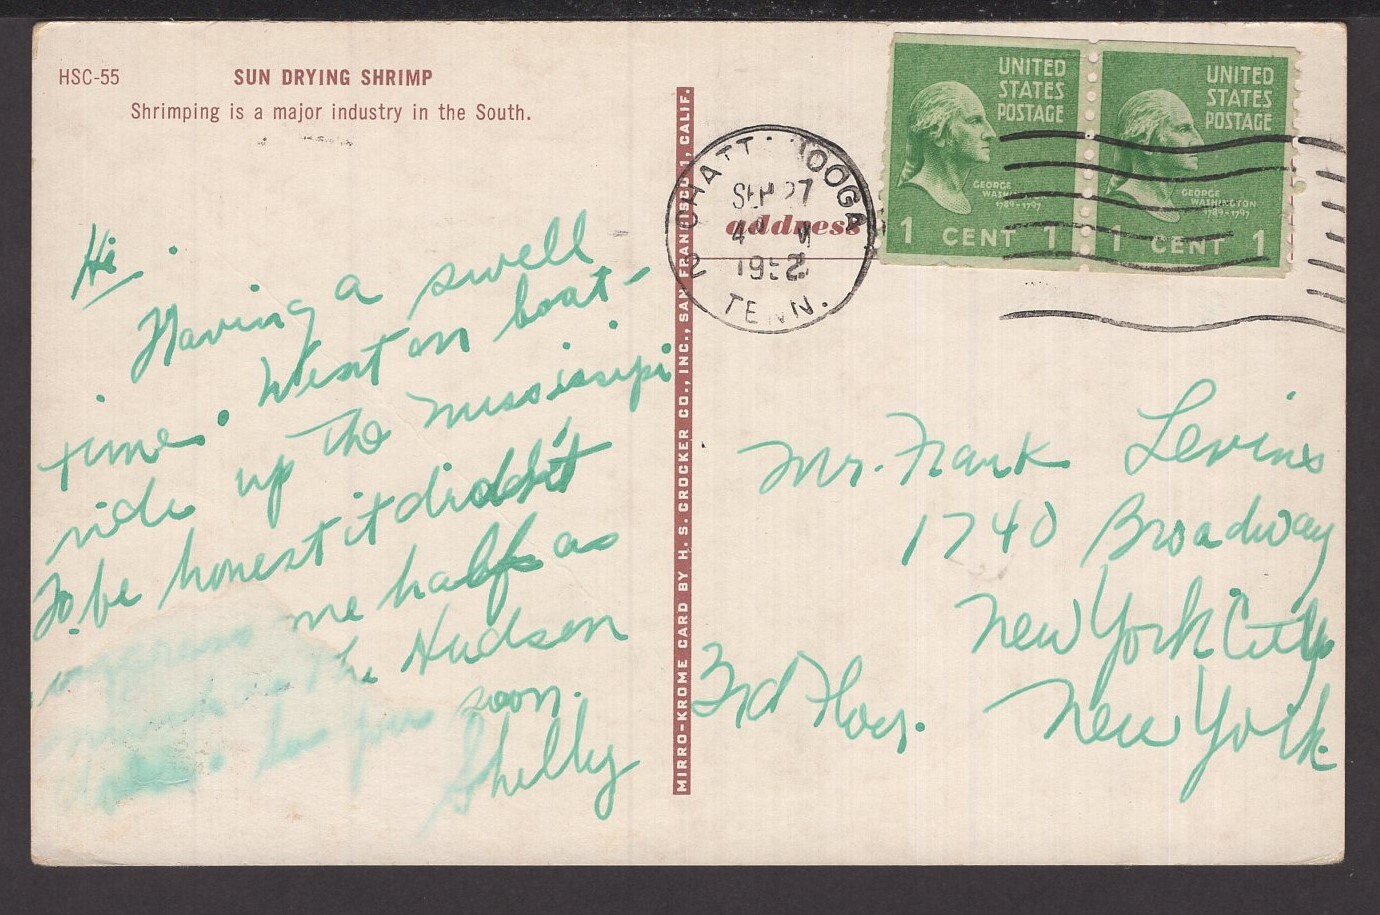 HSC-55
SUN DRYING SHRIMP
Shrimping is a major industry in the South.
Hi.
Having a swell
time. Went on boat-
ride up the Mississipi
To be honest it didn't
me half as
the Hudson
soon.
Shelly
MIRRO-KROME CARD BY H. S. CROCKER CO., INC., SAN FRANCISCO 1, CALIF.
address
CHATT OOGA
SEP 27
4 M
1952
TENN.
UNITED
STATES
POSTAGE
GEORGE
WASH
1789-1797
1 CENT 1
UNITED
STATES
POSTAGE
GEORGE
WASHINGTON
1789-1797
1 CENT 1
Mr. Frank Levine
1740 Broadway
New York City
3rd Floor.
New York.